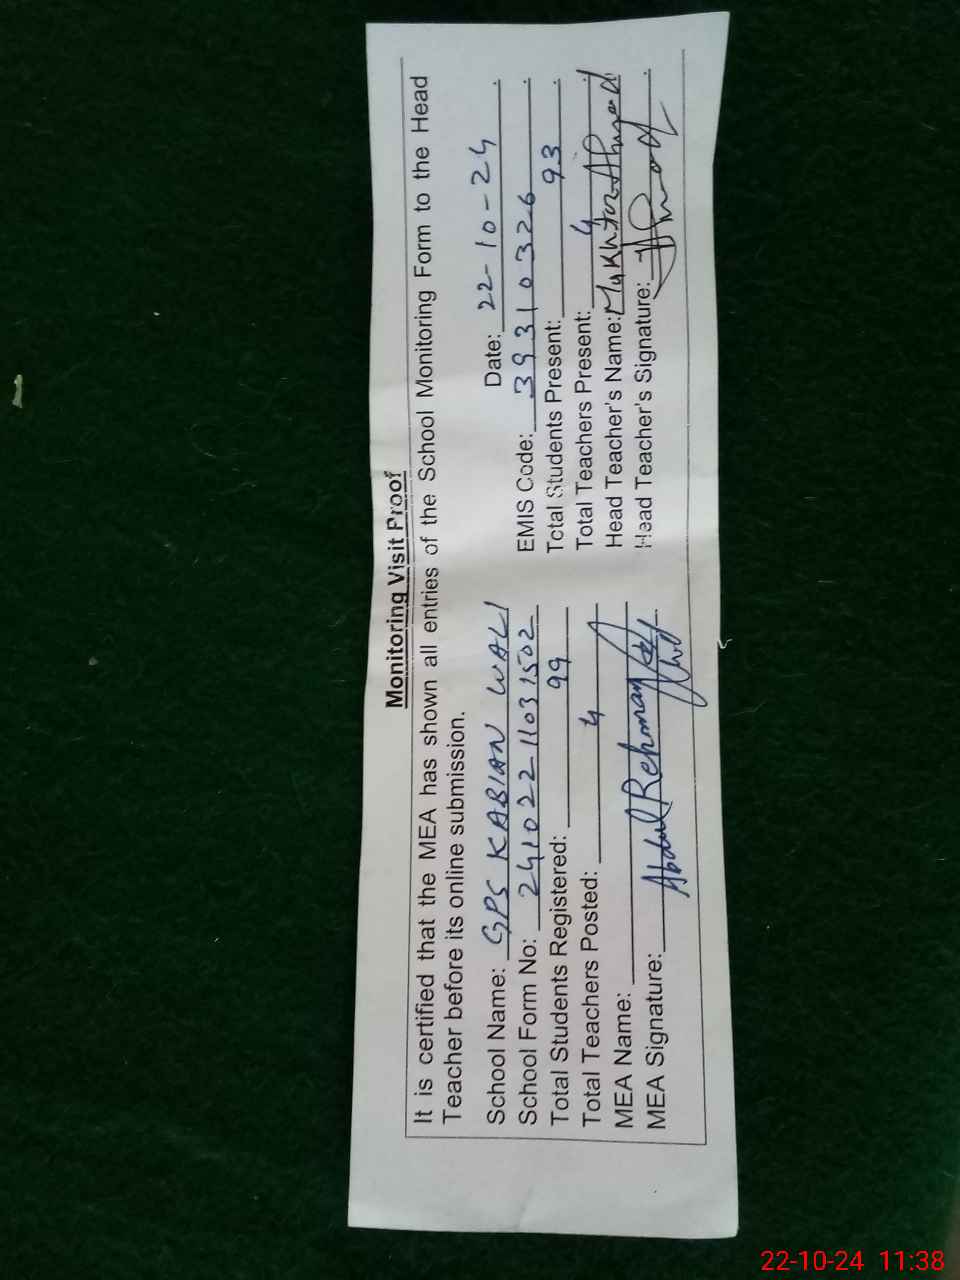 Monitoring Visit Proof
It is certified that the MEA has shown all entries of the School Monitoring Form to the Head
Teacher before its online submission.
School Name: GPS KABIAN WALI Date: 22-10-24
School Form No: 241022 11031502 EMIS Code: 39310326
Total Students Registered: 99 Total Students Present: 93
Total Teachers Posted: 4 Total Teachers Present: 4
MEA Name: Abdul Rehman Head Teacher's Name: Mukhtar Ahmad
MEA Signature: Head Teacher's Signature:
22-10-24 11:38